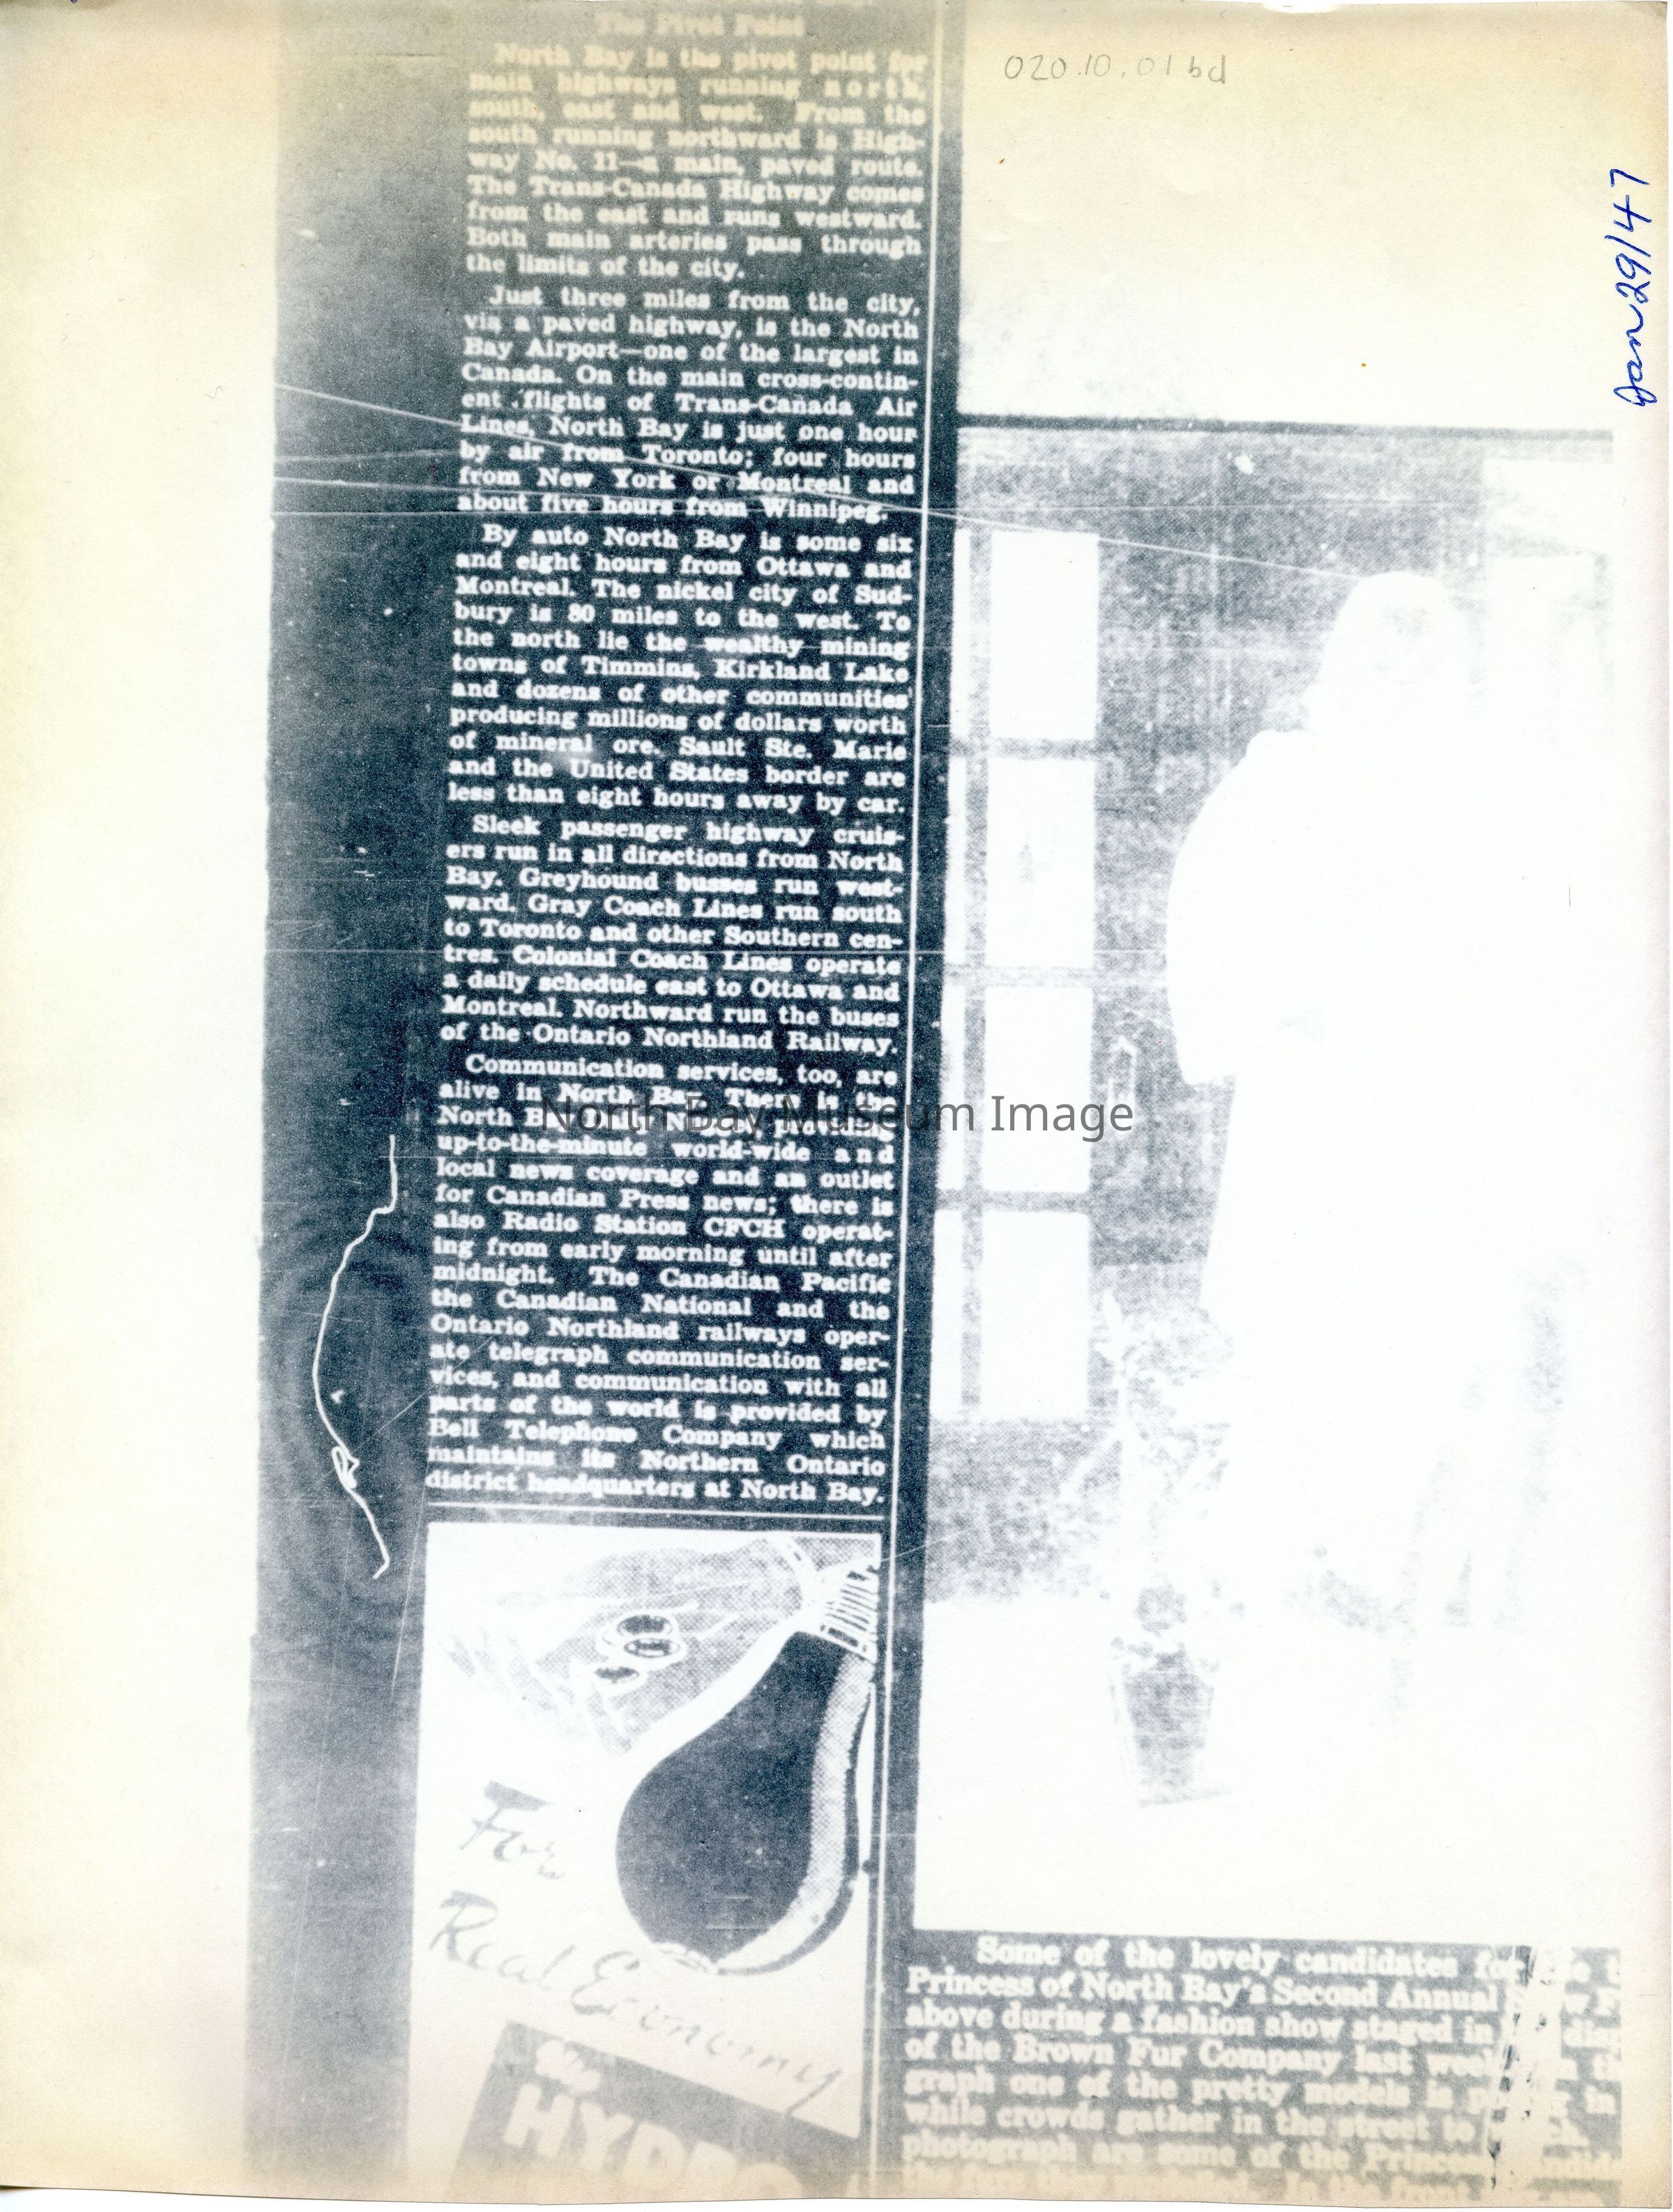 The Pivot Point
North Bay is the pivot point for
main highways running north,
south, east and west. From the
south running northward is High-
way No. 11—a main, paved route.
The Trans-Canada Highway comes
from the east and runs westward.
Both main arteries pass through
the limits of the city.
Just three miles from the city,
via a paved highway, is the North
Bay Airport—one of the largest in
Canada. On the main cross-contin-
ent flights of Trans-Canada Air
Lines, North Bay is just one hour
by air from Toronto; four hours
from New York or Montreal and
about five hours from Winnipeg.
By auto North Bay is some six
and eight hours from Ottawa and
Montreal. The nickel city of Sud-
bury is 80 miles to the west. To
the north lie the wealthy mining
towns of Timmins, Kirkland Lake
and dozens of other communities
producing millions of dollars worth
of mineral ore. Sault Ste. Marie
and the United States border are
less than eight hours away by car.
Sleek passenger highway cruis-
ers run in all directions from North
Bay. Greyhound busses run west-
ward. Gray Coach Lines run south
to Toronto and other Southern cen-
tres. Colonial Coach Lines operate
a daily schedule east to Ottawa and
Montreal. Northward run the buses
of the Ontario Northland Railway.
Communication services, too, are
alive in North Bay. There is the
North Bay Daily Nugget providing
up-to-the-minute world-wide and
local news coverage and an outlet
for Canadian Press news; there is
also Radio Station CFCH operat-
ing from early morning until after
midnight. The Canadian Pacific
the Canadian National and the
Ontario Northland railways oper-
ate telegraph communication ser-
vices, and communication with all
parts of the world is provided by
Bell Telephone Company which
maintains its Northern Ontario
district headquarters at North Bay.
For
Real Economy
the
HYDRO
020.10.01bd
Jan 29/47
Some of the lovely candidates for
Princess of North Bay's Second Annual
above during a fashion show staged in
of the Brown Fur Company last week
graph one of the pretty models is
while crowds gather in the street to
photograph are some of the Princess
North Bay Museum Image